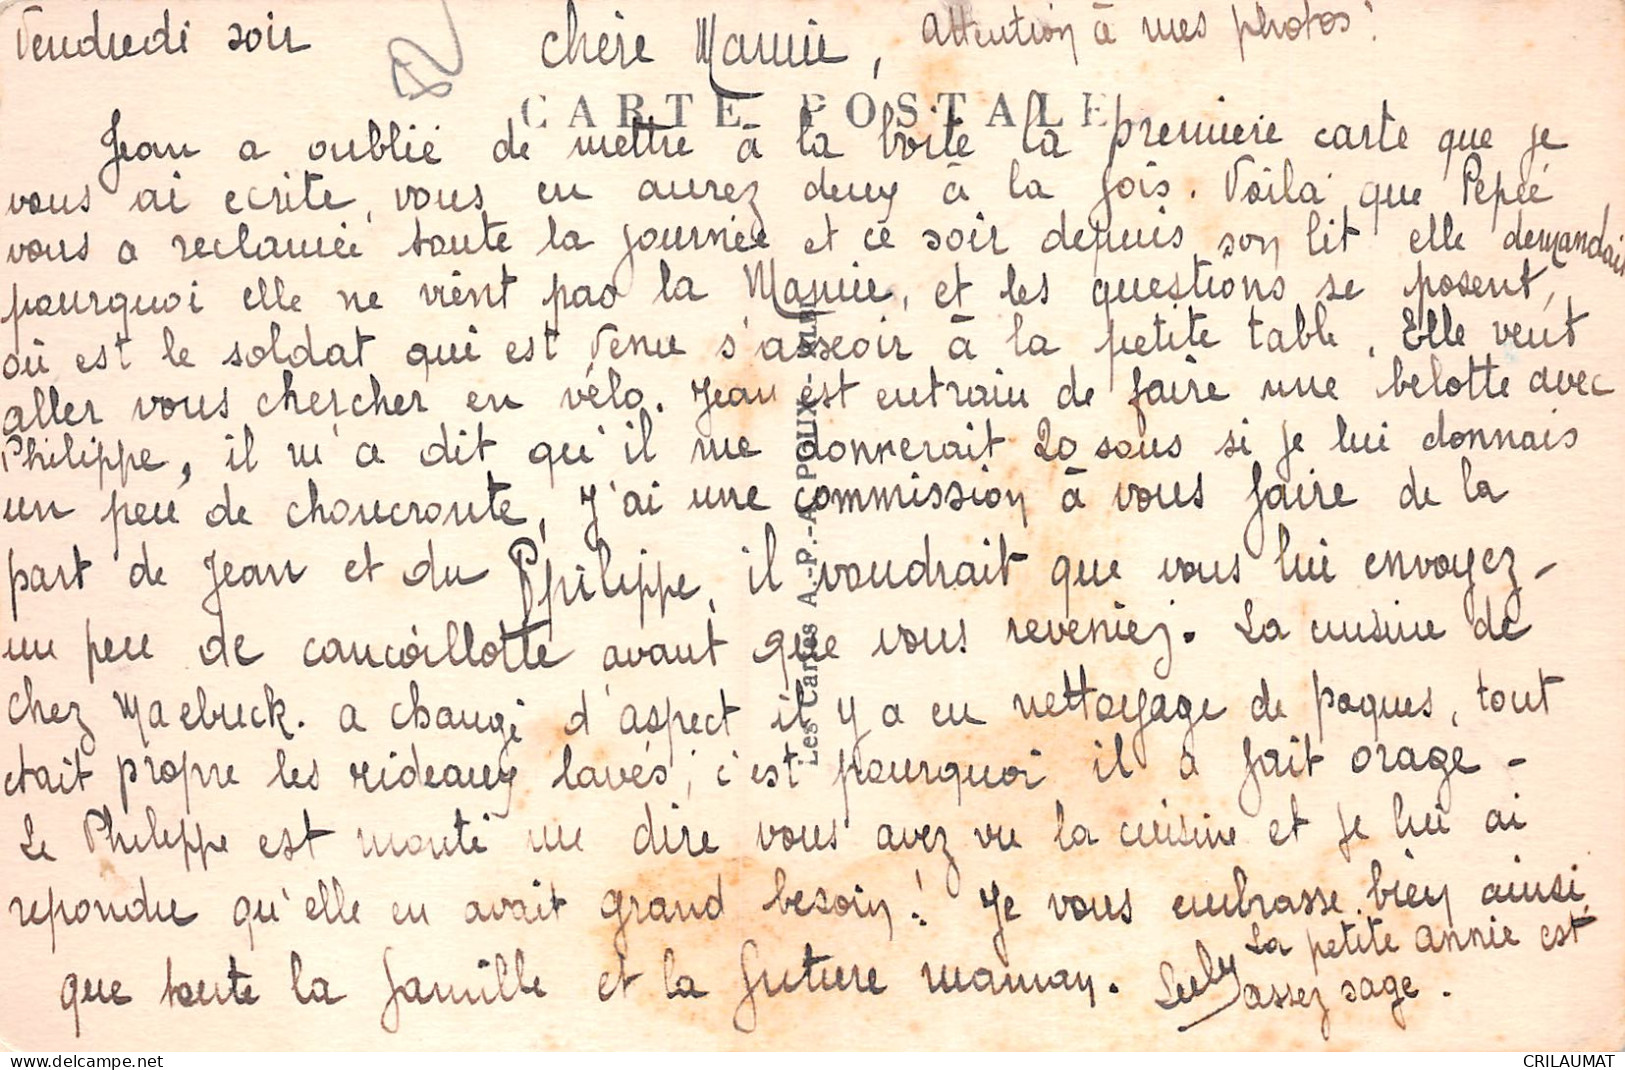 Vendredi soir
Chère Mamie, Attention à mes photos!
CARTE POSTALE
Jean a oublié de mettre à la boite la premiere carte que je
vous ai ecrite, vous en aurez deux à la fois. Voilà que Pepée
vous a reclamée toute la journée et ce soir depuis son lit elle demandait
pourquoi elle ne vient pas la Mamie, et les questions se posent,
où est le soldat qui est venu s'asseoir à la petite table. Elle veut
aller vous chercher en vélo. Jean est entrain de faire une belotte avec
Philippe, il m'a dit qu'il me donnerait 20 sous si je lui donnais
un peu de choucroute, J'ai une commission à vous faire de la
part de Jean et du Philippe, il voudrait que vous lui envoyez-
un peu de cancoillotte avant que vous reveniez. La cuisine de
chez Maebreck. a changé d'aspect il y a eu nettoyage de paques, tout
etait propre les rideaux lavés, c'est pourquoi il a fait orage -
Le Philippe est monté me dire vous avez vu la cuisine et je lui ai
repondu qu'elle en avait grand besoin! Je vous embrasse bien ainsi
que toute la famille et la future maman. Luly
La petite Annie est
assez sage.
Les Cartes A.-P.-A. POUX - ALBI
delcampe.net
CRILAUMAT